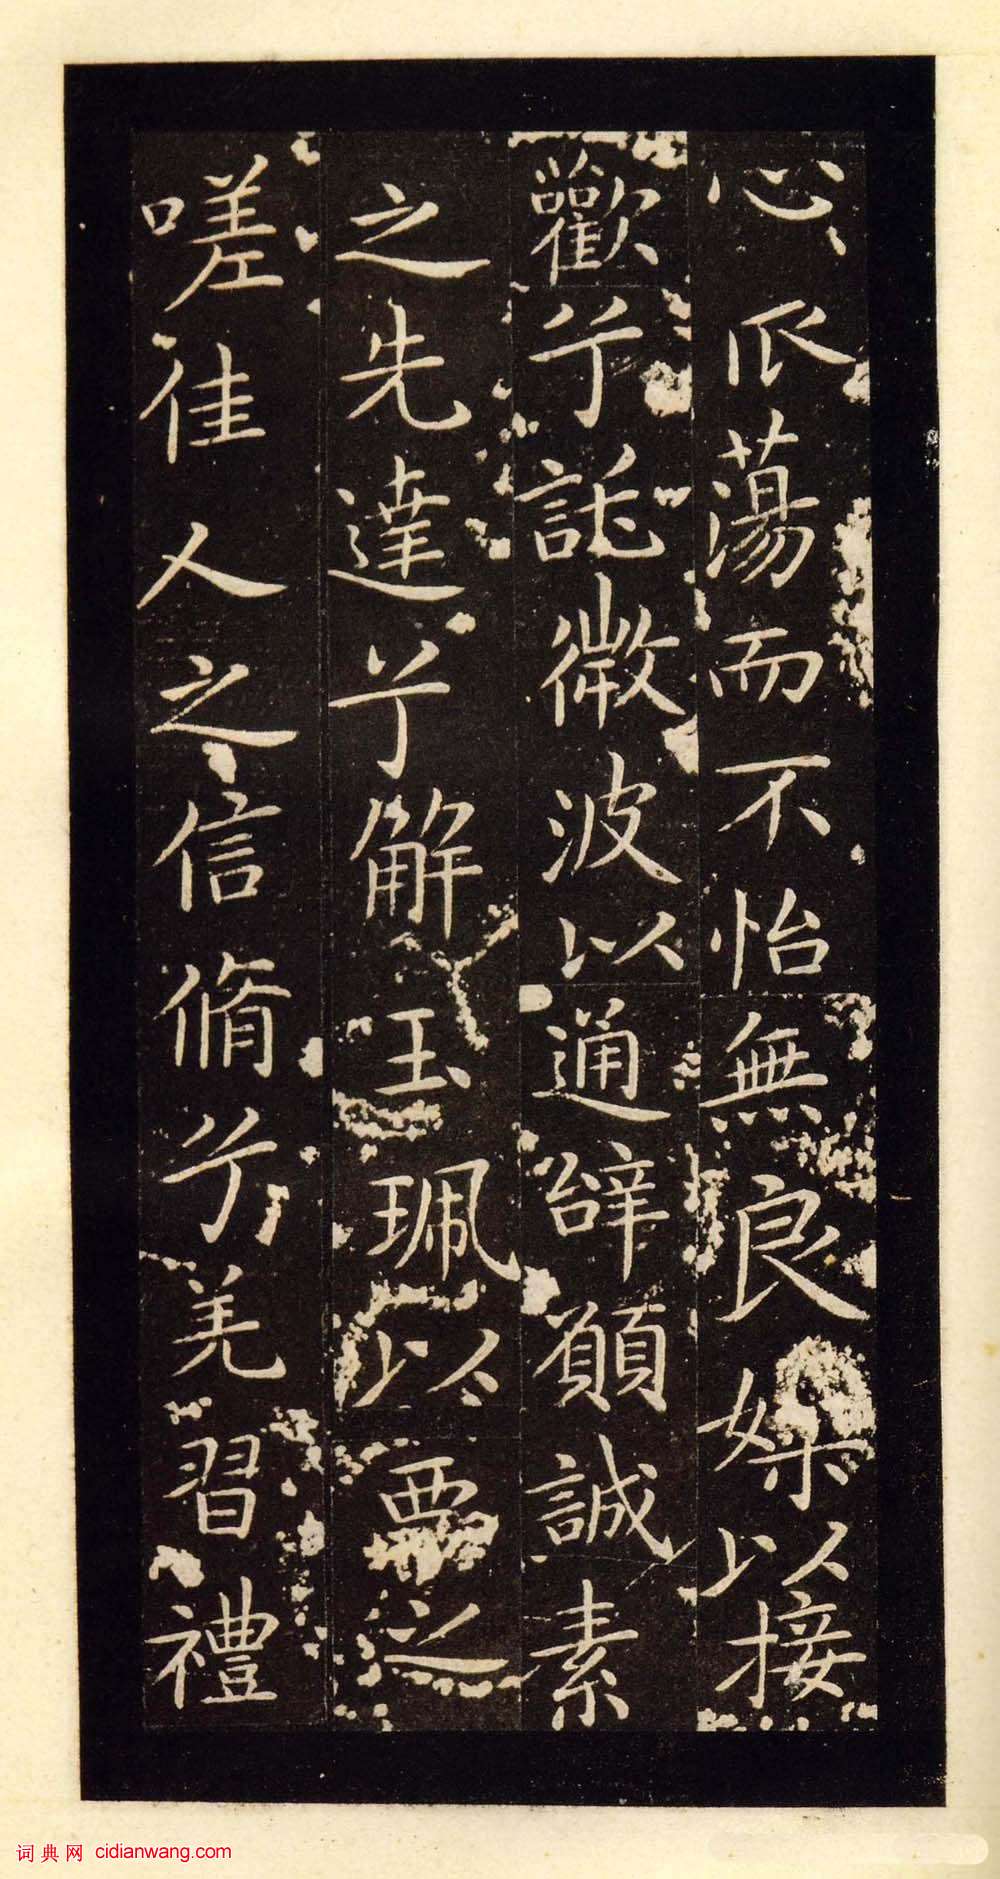 心㕟蕩而不怡無良媒以接
歡兮託微波以通辭願誠素
之先達兮解玉珮以要之
嗟佳人之信脩兮羌習禮
词典网 cidianwang.com